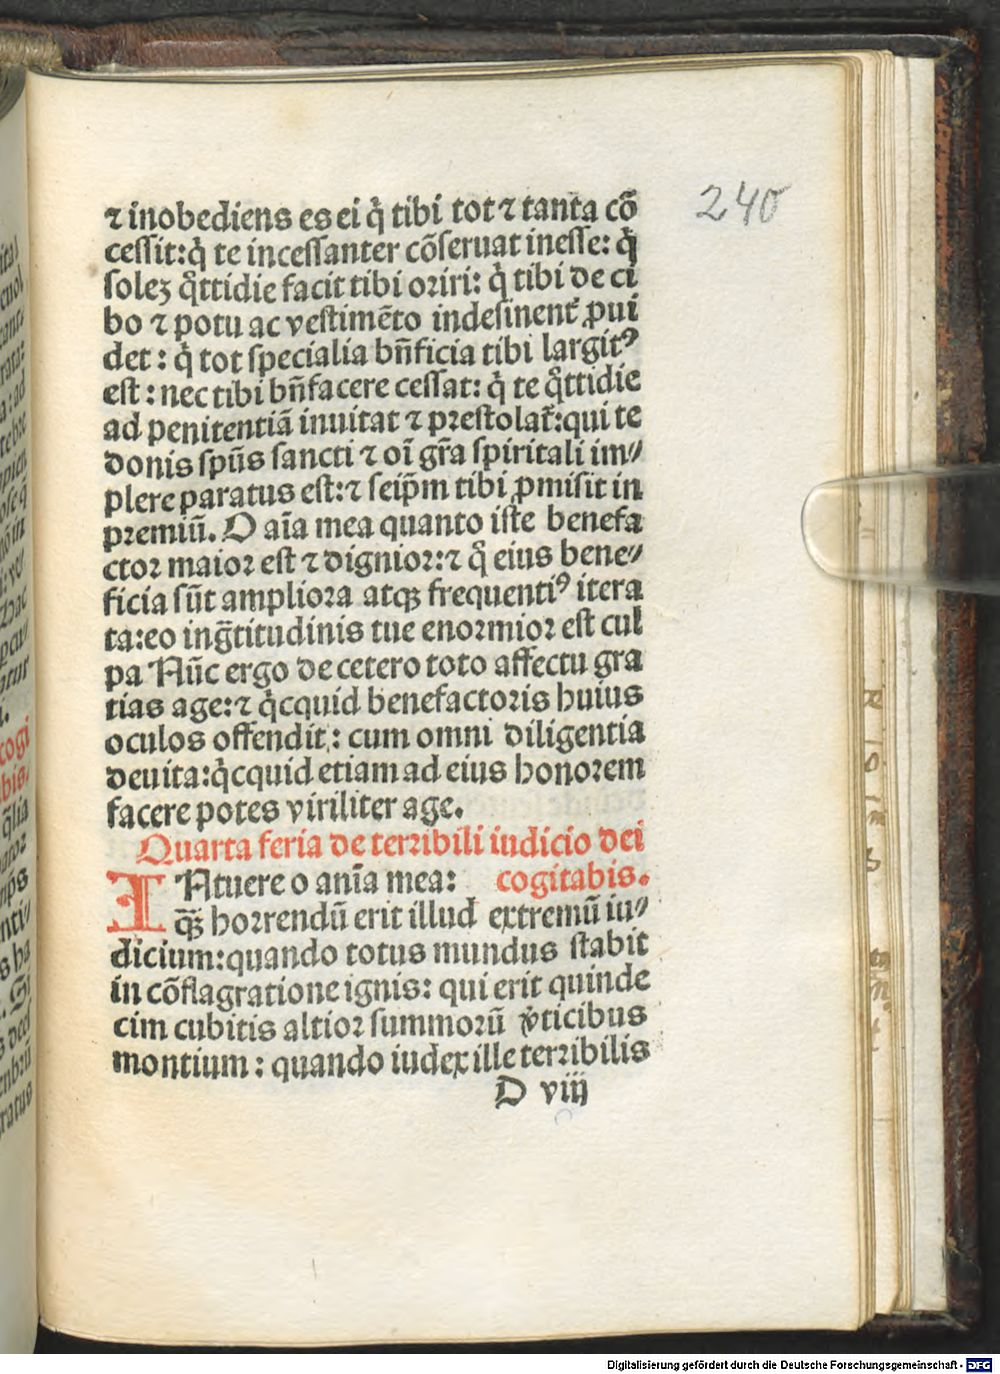 240
⁊ inobediens es ei q̇ tibi tot ⁊ tanta cō
ceſſit: q̇ te inceſſanter cōſeruat ineſſe: q̇
ſoleꝫ q̊ttidie facit tibi oꝛiri: q̇ tibi de ci
bo ⁊ potu ac veſtimēto indeſinent᷑ ꝓui
det: q̇ tot ſpecialia bn̄ficia tibi largitꝰ
eſt: nec tibi bn̄facere ceſſat: q̇ te q̊ttidie
ad penitentiā inuitat ⁊ pꝛeſtolat᷑: qui te
donis ſpūs ſancti ⁊ oī gr̄a ſpiritali im⸗
plere paratus eſt: ⁊ ſeip̄m tibi ꝓmiſit in
pꝛemiū. O aīa mea quanto iſte benefa
ctoꝛ maioꝛ eſt ⁊ dignioꝛ: ⁊ q̊ eius bene⸗
ficia ſūt amplioꝛa atqꝫ frequentiꝰ itera
ta: eo ing̃titudinis tue enoꝛmioꝛ eſt cul
pa Nūc ergo de cetero toto affectu gra
tias age: ⁊ q̇cquid benefactoꝛis huius
oculos offendit: cum omni diligentia
deuita: q̇cquid etiam ad eius honoꝛem
facere potes viriliter age.
Quarta feria de terꝛibili iudicio dei
cogitabis.
INtuere o anīa mea:
qꝫ̄ hoꝛrendū erit illud extremū iu⸗
dicium: quando totus mundus ſtabit
in cōflagratione ignis: qui erit quinde
cim cubitis altioꝛ ſummoꝛū v̓ticibus
montium: quando iudex ille terꝛibilis
D viij
Digitalisierung gefördert durch die Deutsche Forschungsgemeinschaft - DFG